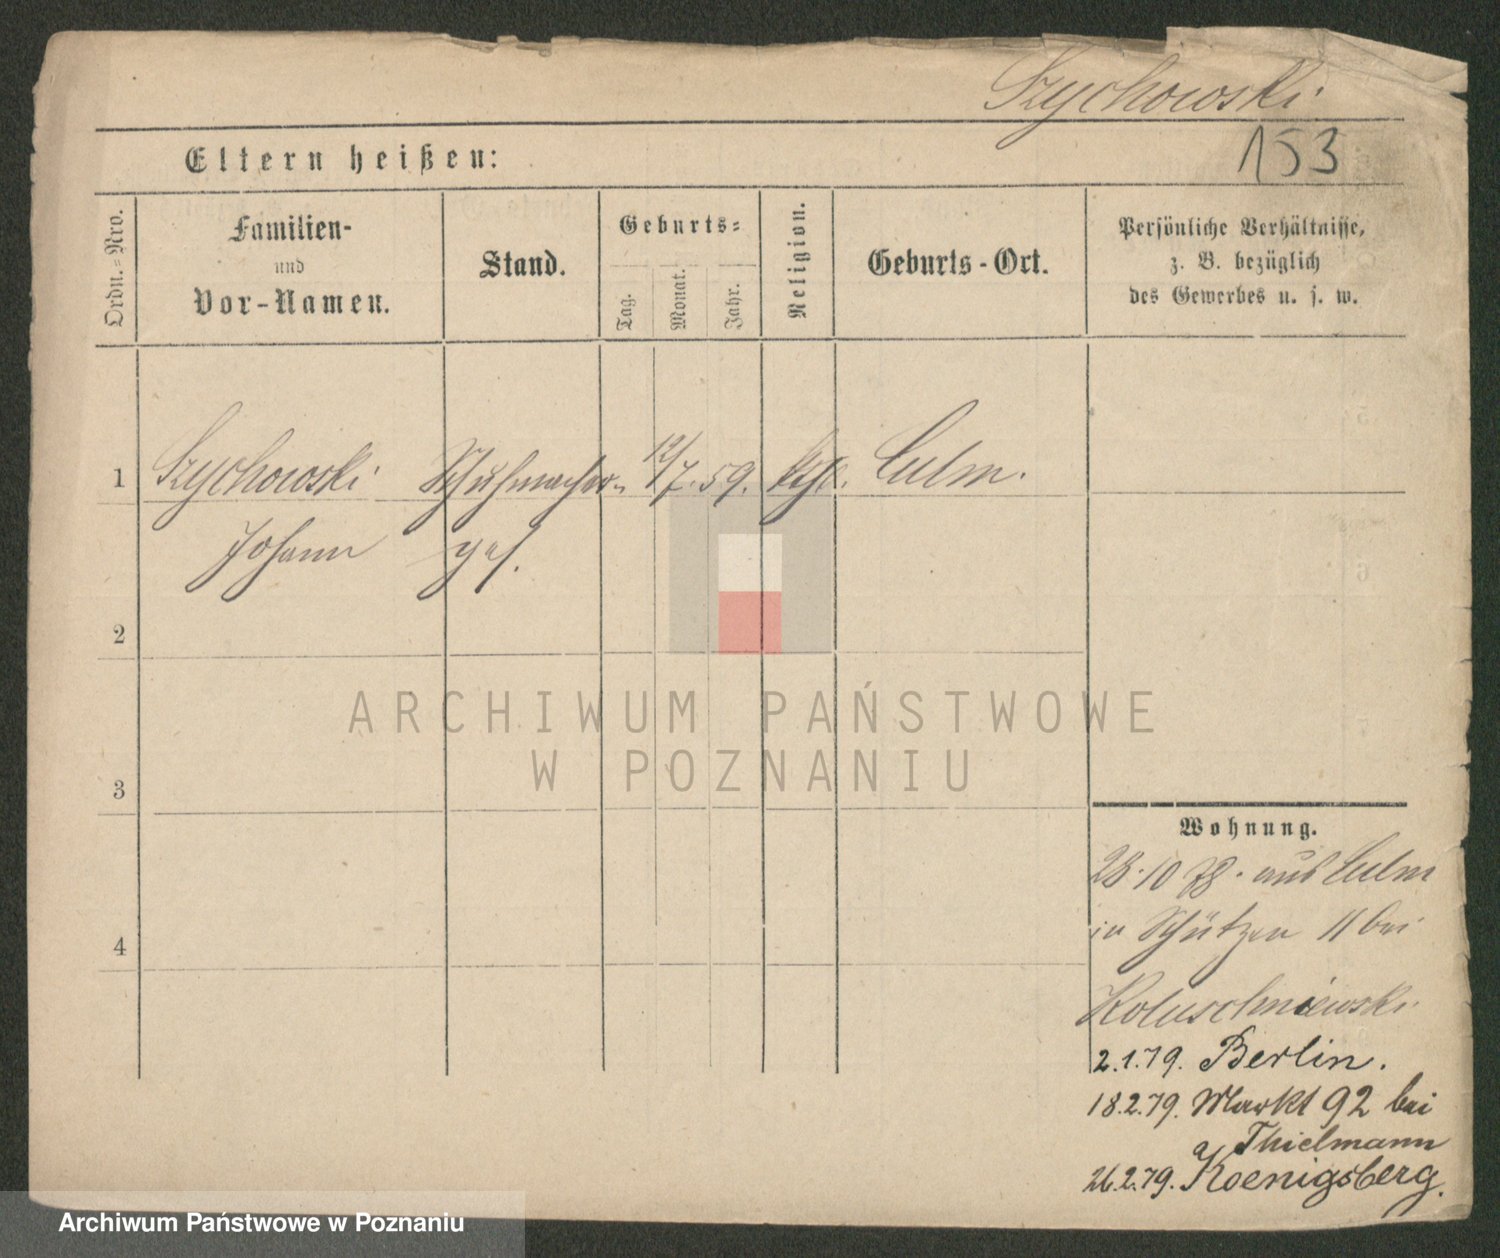 Szychowski.
153
Eltern heißen:
Ordn.-Nro.
Familien-
und
Vor-Namen.
Stand.
Geburts-
Tag.
Monat.
Jahr.
Religion.
Geburts-Ort.
Persönliche Verhältnisse,
z. B. bezüglich
des Gewerbes u. s. w.
1 Szychowski Schuhmacher- 12/7. 59. kth. Culm.
Johann ges.
2
3
4
Wohnung.
28.10 78. aus Culm
in Schützen 11 bei
Koluschniewski
2.1.79. Berlin.
18.2.79. Markt 92 bei
Thielmann
26.2.79. Koenigsberg.
ARCHIWUM PAŃSTWOWE
W POZNANIU
Archiwum Państwowe w Poznaniu